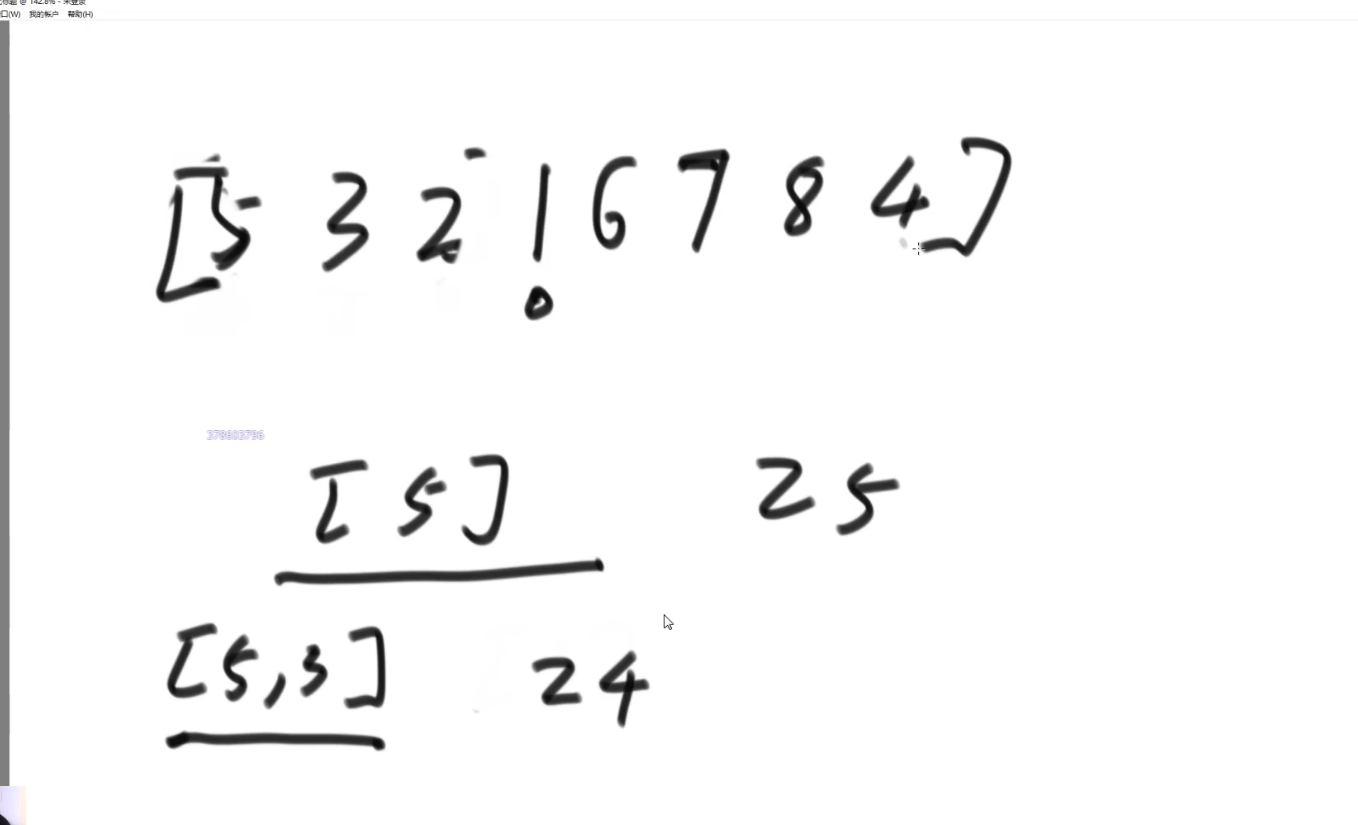 口(W) 我的帐户 帮助(H)
[5 3 2 1 6 7 8 4]
378603796
[5] 25
[5,3] 24